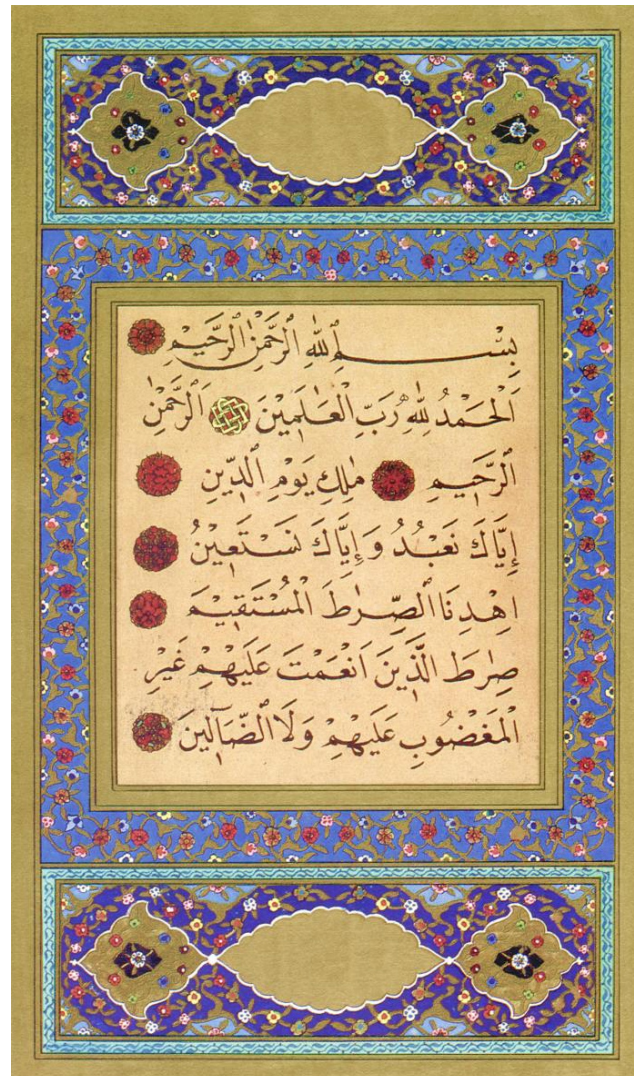 بِسْمِ اللّٰهِ الرَّحْمٰنِ الرَّحِيمِ
اَلْحَمْدُ لِلّٰهِ رَبِّ الْعَالَمِينَ اَلرَّحْمٰنِ
الرَّحِيمِ مٰلِكِ يَوْمِ الدِّينِ
إِيَّاكَ نَعْبُدُ وَإِيَّاكَ نَسْتَعِينُ
اِهْدِنَا الصِّرٰطَ الْمُسْتَقِيمَ
صِرٰطَ الَّذِينَ اَنْعَمْتَ عَلَيْهِمْ غَيْرِ
الْمَغْضُوبِ عَلَيْهِمْ وَلَا الضَّٓالِّينَ